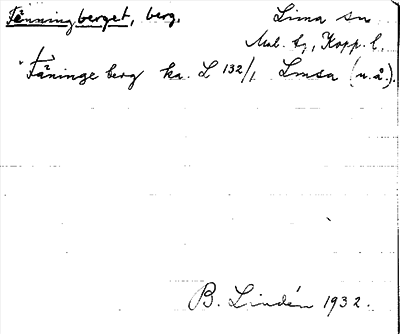 Tänningberget, berg.
Lima sn
Mal. tg, Kopp. l.
Tåninge berg ka. L 132/1 Lmsa (u.å.).
B. Lindén 1932.